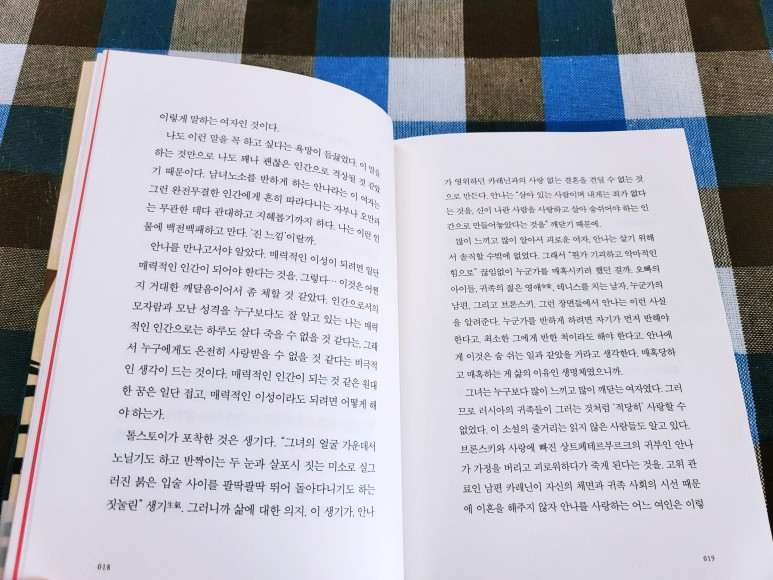 이렇게 말하는 여자인 것이다.
나도 이런 말을 꼭 하고 싶다는 욕망이 들끓었다. 이 말을
하는 것만으로 나도 꽤나 괜찮은 인간으로 격상될 것 같았
기 때문이다. 남녀노소를 반하게 하는 안나라는 이 여자는
그런 완전무결한 인간에게 흔히 따라다니는 자부나 오만과
는 무관한 데다 관대하고 지혜롭기까지 하다. 나는 이런 인
물에 백전백패하고 만다. ‘진 느낌’이랄까.
안나를 만나고서야 알았다. 매력적인 이성이 되려면 일단
매력적인 인간이 되어야 한다는 것을. 그렇다… 이것은 어쩐
지 거대한 깨달음이어서 좀 체할 것 같았다. 인간으로서의
모자람과 모난 성격을 누구보다도 잘 알고 있는 나는 매력
적인 인간으로는 하루도 살다 죽을 수 없을 것 같다는, 그래
서 누구에게도 온전히 사랑받을 수 없을 것 같다는 비극적
인 생각이 드는 것이다. 매력적인 인간이 되는 것 같은 원대
한 꿈은 일단 접고, 매력적인 이성이라도 되려면 어떻게 해
야 하는가.
톨스토이가 포착한 것은 생기다. “그녀의 얼굴 가운데서
노닐기도 하고 반짝이는 두 눈과 살포시 짓는 미소로 실그
러진 붉은 입술 사이를 팔딱팔딱 뛰어 돌아다니기도 하는
짓눌린” 생기生氣. 그러니까 삶에 대한 의지. 이 생기가, 안나
018
가 영위하던 카레닌과의 사랑 없는 결혼을 견딜 수 없는 것
으로 만든다. 안나는 “살아 있는 사람이며 내게는 죄가 없다
는 것을, 신이 나란 사람을 사랑하고 살아 숨쉬어야 하는 인
간으로 만들어놓았다는 것을” 깨닫기 때문에.
많이 느끼고 많이 알아서 괴로운 여자, 안나는 살기 위해
서 솔직할 수밖에 없었다. 그래서 “뭔가 기괴하고 악마적인
힘으로” 끊임없이 누군가를 매혹시키려 했던 걸까. 오빠의
아이들, 귀족의 젊은 영애令愛, 테니스를 치는 남자, 누군가의
남편, 그리고 브론스키. 그런 장면들에서 안나는 이런 사실
을 알려준다. 누군가를 반하게 하려면 자기가 먼저 반해야
한다고. 최소한 그에게 반한 척이라도 해야 한다고. 안나에
게 이것은 숨 쉬는 일과 같았을 거라고 생각한다. 매혹당하
고 매혹하는 게 삶의 이유인 생명체였으니까.
그녀는 누구보다 많이 느끼고 많이 깨닫는 여자였다. 그러
므로 러시아의 귀족들이 그러는 것처럼 ‘적당히’ 사랑할 수
없었다. 이 소설의 줄거리는 읽지 않은 사람들도 알고 있다.
브론스키와 사랑에 빠진 상트페테르부르크의 귀부인 안나
가 가정을 버리고 괴로워하다가 죽게 된다는 것을. 고위 관
료인 남편 카레닌이 자신의 체면과 귀족 사회의 시선 때문
에 이혼을 해주지 않자 안나를 사랑하는 어느 여인은 이렇
019